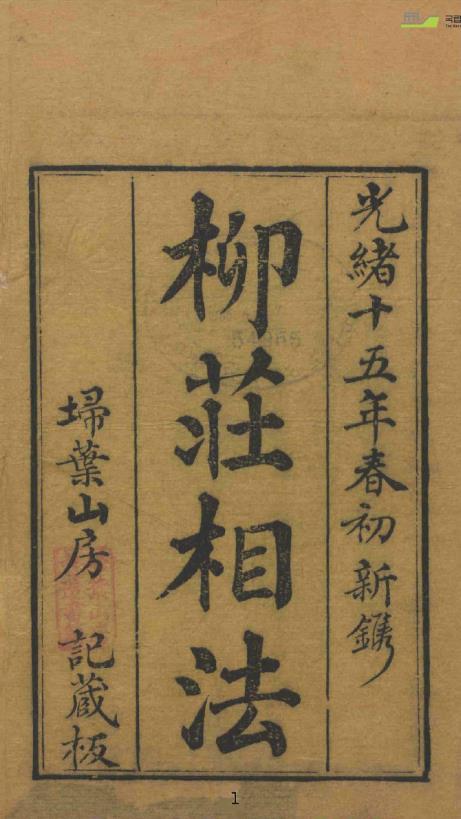 光緒十五年春初新鐫
柳莊相法
埽葉山房記藏板
54985
1